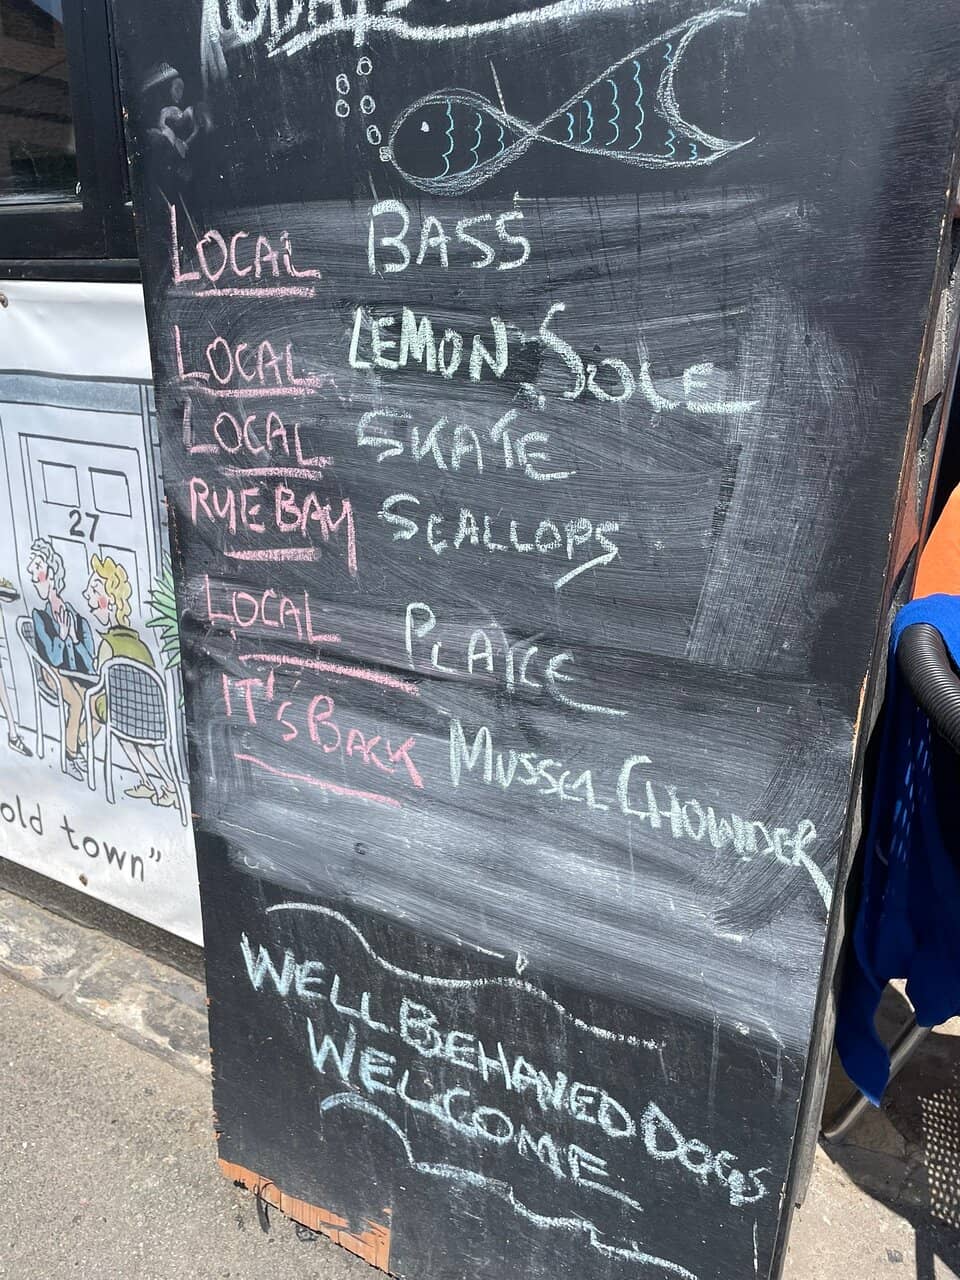 TODAY'S
LOCAL BASS
LOCAL LEMON SOLE
LOCAL SKATE
RYE BAY SCALLOPS
LOCAL PLAYCE
IT'S BACK MUSSEL CHOWDER
WELL BEHAVED DOGS
WELCOME
27
old town"